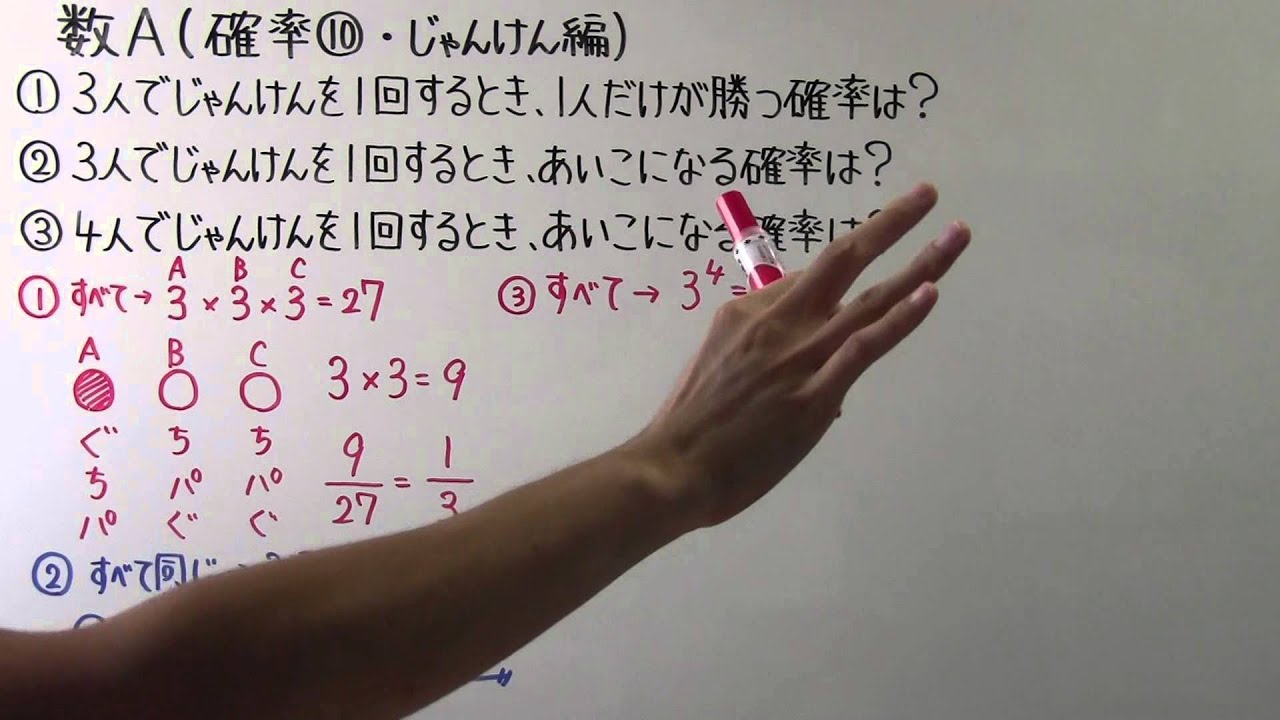 数A(確率⑩・じゃんけん編)
① 3人でじゃんけんを1回するとき、1人だけが勝つ確率は?
② 3人でじゃんけんを1回するとき、あいこになる確率は?
③ 4人でじゃんけんを1回するとき、あいこになる確率は?
A B C
① すべて→ 3×3×3=27
A B C
3×3=9
ぐ ち ち
ち パ パ
パ ぐ ぐ
9/27 = 1/3
② すべて同じ
③ すべて→ 3⁴=